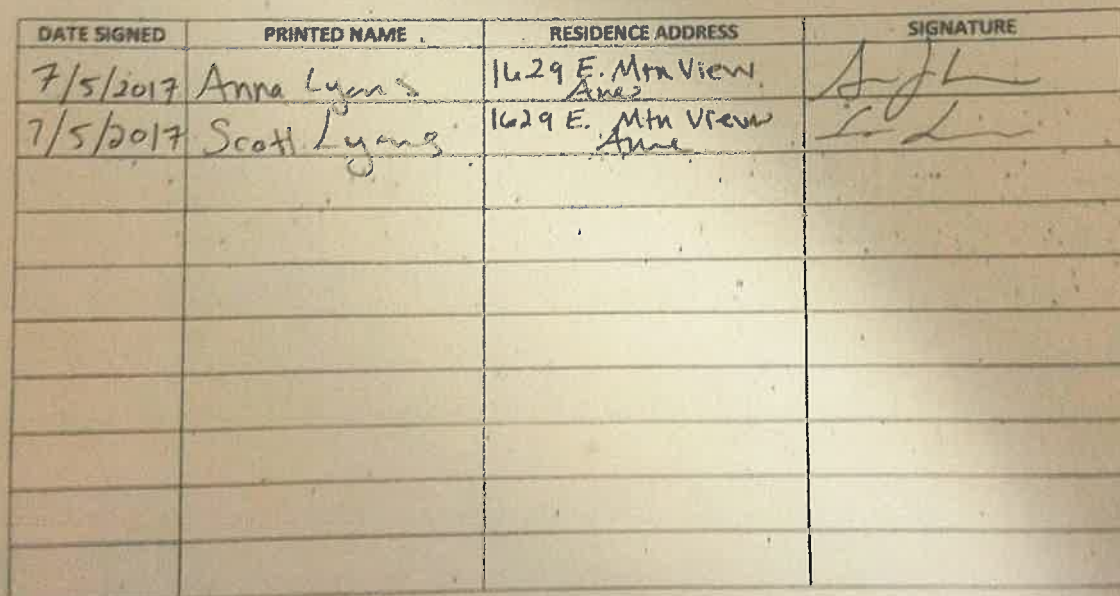 DATE SIGNED PRINTED NAME RESIDENCE ADDRESS SIGNATURE
7/5/2017 Anna Lyons 1629 E. Mtn View
7/5/2017 Scott Lyons 1629 E. Mtn View